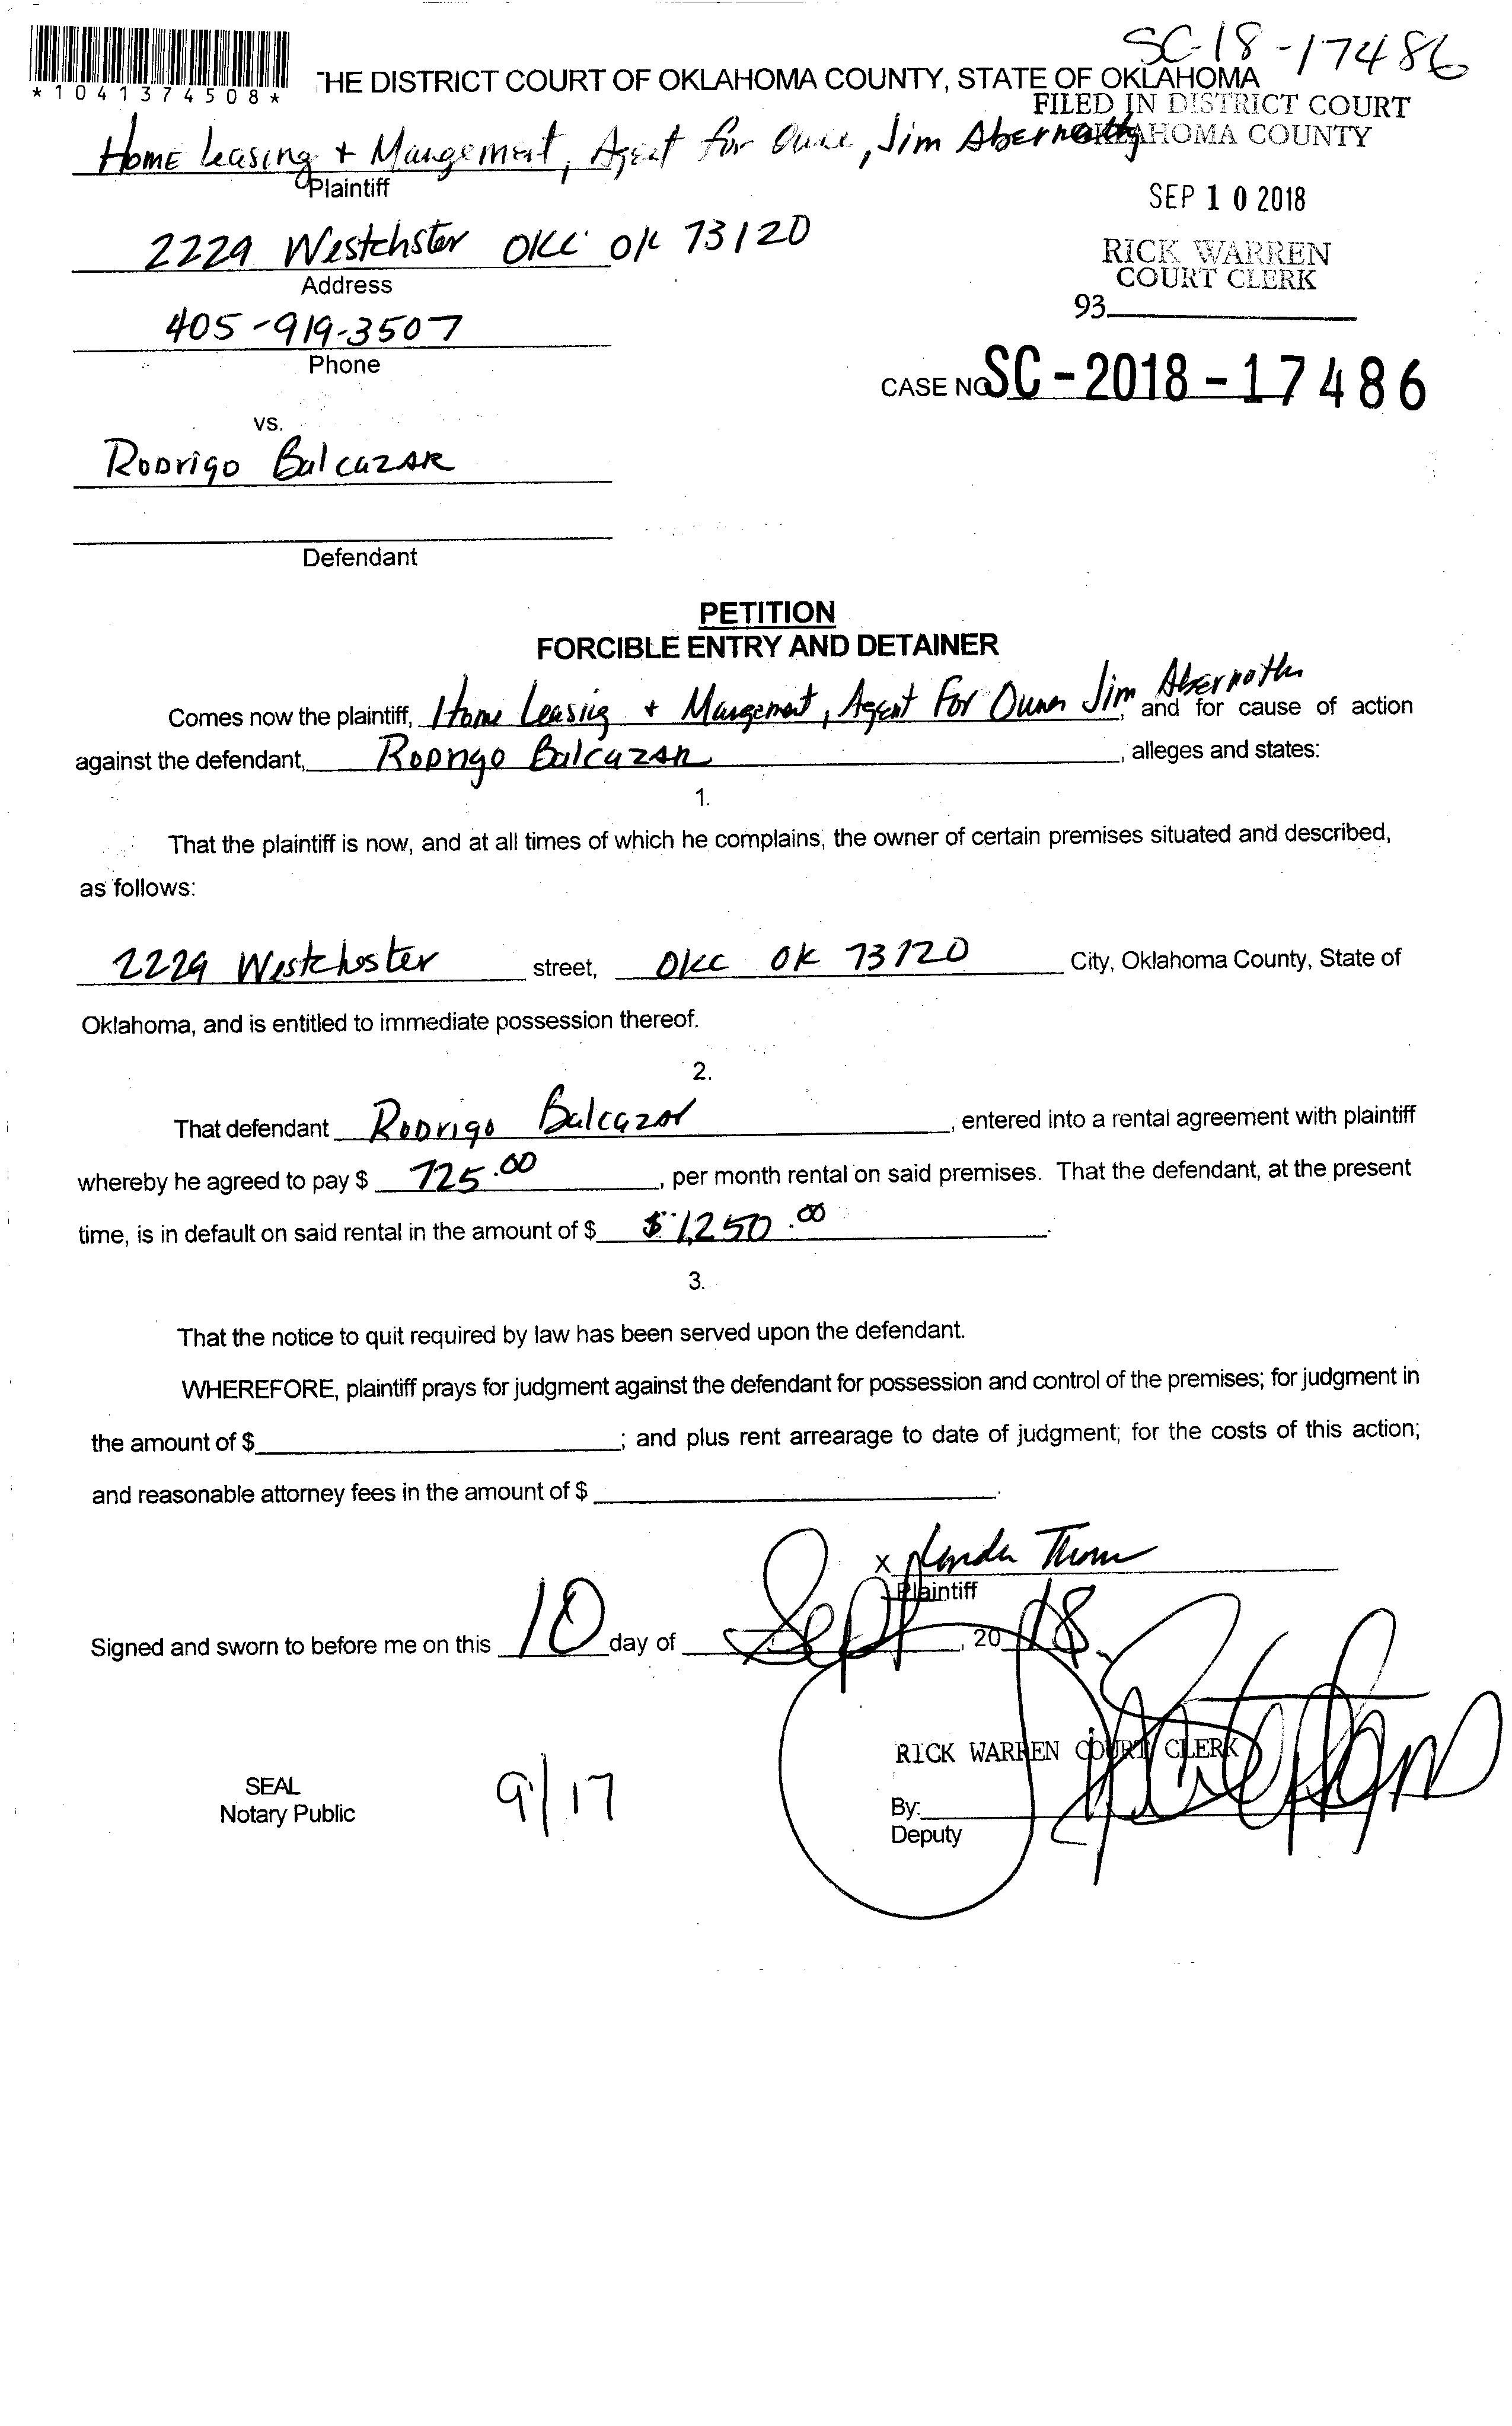 SC-18-17486
*1041374508*
THE DISTRICT COURT OF OKLAHOMA COUNTY, STATE OF OKLAHOMA
FILED IN DISTRICT COURT
OKLAHOMA COUNTY
Home Leasing + Mangement, Agent for Owne, Jim Abernathy
Plaintiff
SEP 10 2018
2229 Westchster OKC OK 73120
Address
RICK WARREN
COURT CLERK
93
405-919-3507
Phone
CASE NO SC-2018-17486
vs.
Rodrigo Balcazar
Defendant
PETITION
FORCIBLE ENTRY AND DETAINER
Comes now the plaintiff, Home Leasing + Mangement, Agent For Owner Jim Abernoth, and for cause of action
against the defendant, Rodrigo Balcazar, alleges and states:
1.
That the plaintiff is now, and at all times of which he complains, the owner of certain premises situated and described,
as follows:
2229 Westchester street, OKC OK 73120 City, Oklahoma County, State of
Oklahoma, and is entitled to immediate possession thereof.
2.
That defendant Rodrigo Balcazar, entered into a rental agreement with plaintiff
whereby he agreed to pay $ 725.00, per month rental on said premises. That the defendant, at the present
time, is in default on said rental in the amount of $ $1,250.00.
3.
That the notice to quit required by law has been served upon the defendant.
WHEREFORE, plaintiff prays for judgment against the defendant for possession and control of the premises; for judgment in
the amount of $; and plus rent arrearage to date of judgment; for the costs of this action;
and reasonable attorney fees in the amount of $.
X
Plaintiff
Signed and sworn to before me on this 10 day of Sept, 20 18.
RICK WARREN COURT CLERK
SEAL
Notary Public
9/17
By:
Deputy